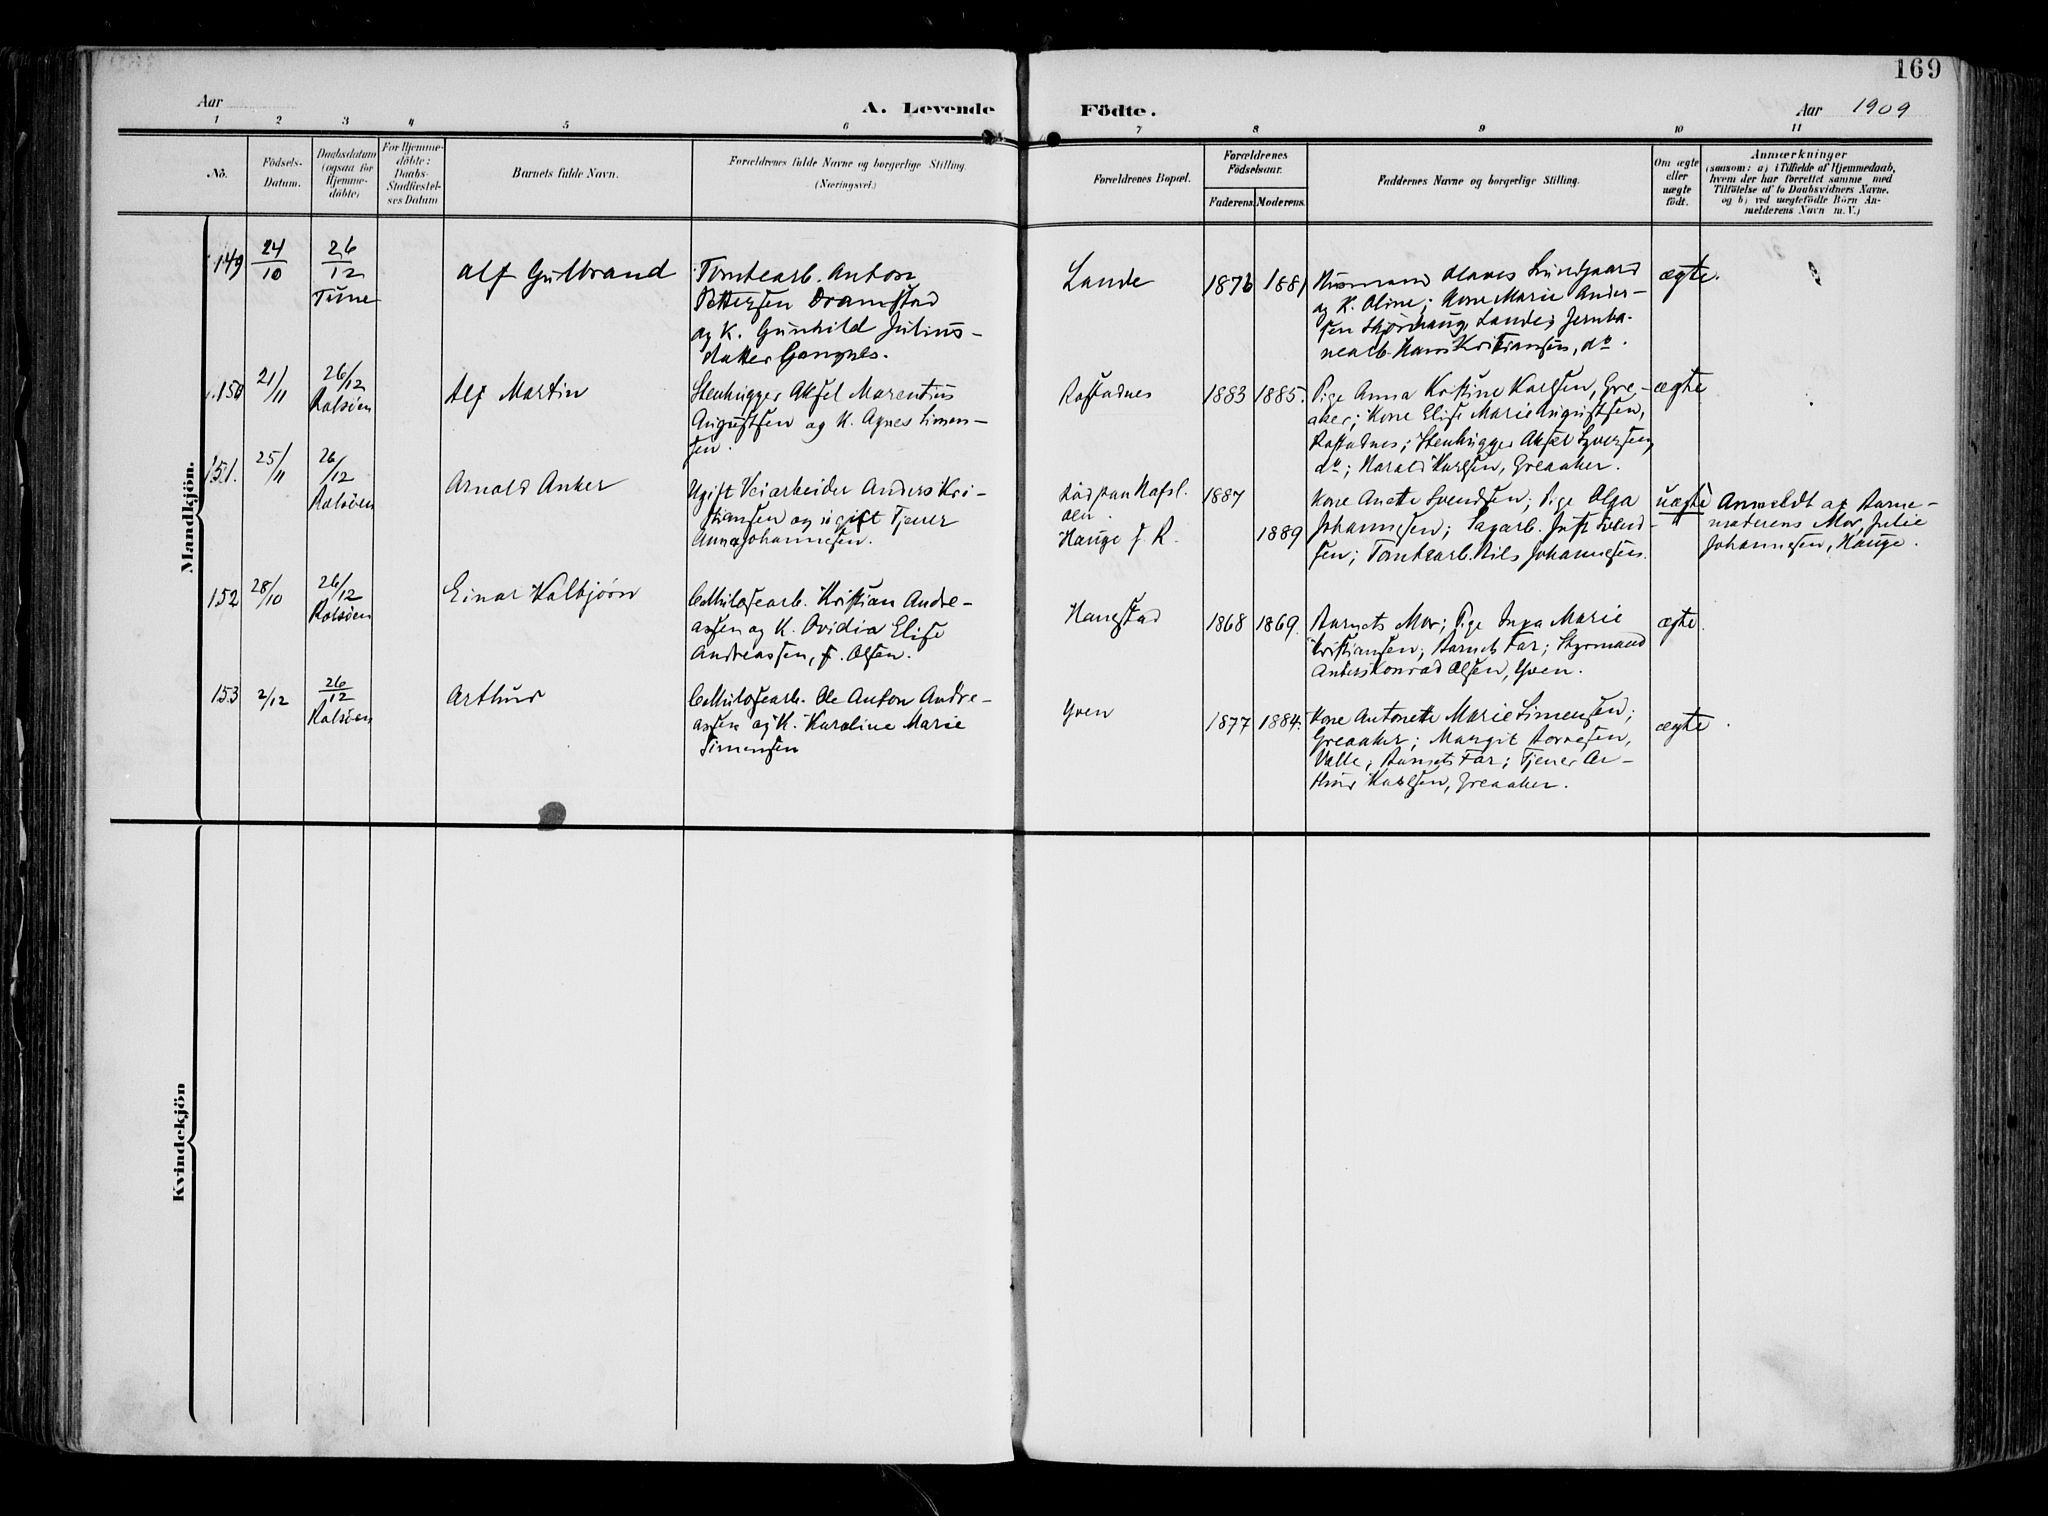 169
Aar
A. Levende Födte.
Aar 1909
1 2 3 4 5 6 7 8 9 10 11
No.
Födsels-
Datum.
Daabsdatum
(ogsaa for
Hjemme-
döbte)
For Hjemme-
döbte:
Daabs-
Stadfæstel-
ses Datum
Barnets fulde Navn.
Forældrenes fulde Navne og borgerlige Stilling.
(Næringsvei.)
Forældrenes Bopæl.
Forældrenes
Födselsaar.
Faderens. Moderens.
Faddernes Navne og borgerlige Stilling.
Om ægte
eller
uægte
födt.
Anmærkninger
(saasom: a) i Tilfælde af Hjemmedaab,
hvem der har forrettet samme med
Tilföielse af to Daabsvidners Navne.
og b) ved uægtefödte Börn An-
melderens Navn m. V.)
Mandkjön.
149
24/10
26/12
Tune
Alf Gulbrand
Tomtearb. Anton
Pettersen Dramstad
og K. Gunhild Julius-
datter Gangnes.
Lande
1876 1881
Olaves Lundgaard
og K. Oline; Kone Marie Ander-
sen Skjørhaug, Lande; Jernba-
nearb. Hans Kristiansen, do.
ægte.
150
21/11
26/12
Rolsöen
Alf Martin
Stenhugger Aksel Marentius
Augustsen og K. Agnes Simen-
sen.
Rostadnes
1883 1885.
Pige Anna Kristine Karlsen, Gre-
aker; Kone Elise Marie Augustsen,
Rostadnes; Stenhugger Aksel Syversen,
do; Harald Karlsen, Greaaker.
ægte
151.
25/11
26/12
Rolsöen
Arnold Anker
Ugift Veiarbeider Anders Kri-
stiansen og ugift Tjener
Anna Johannesen.
Hafsl.
Hauge i R.
1887
1889
Kone Anette Svendsen; Pige Olga
Johannesen; Sagarb. Just Svend-
sen; Tomtearb. Nils Johannesen.
uægte
Anmeldt af Barne-
moderens Mor, Julie
Johannesen, Hauge.
152
28/10
26/12
Rolsöen
Einar Kolbjørn
Cellulosearb. Kristian Andre-
assen og K. Ovidia Elise
Andreassen, f. Olsen.
Haugstad
1868 1869.
Barnets Mor; Pige Inga Marie
Kristiansen; Barnets Far; Styrmand
Anders Konrad Olsen, Yven.
ægte.
153
2/12
26/12
Rolsöen
Arthur
Cellulosearb. Ole Anton Andre-
assen og K. Karoline Marie
Simensen
Yven
1877 1884.
Kone Antonette Marie Simensen;
Greaaker; Margit Torresen,
Valle; Barnets Far; Tjener Ar-
thur Karlsen, Greaaker.
ægte
Kvindekjön